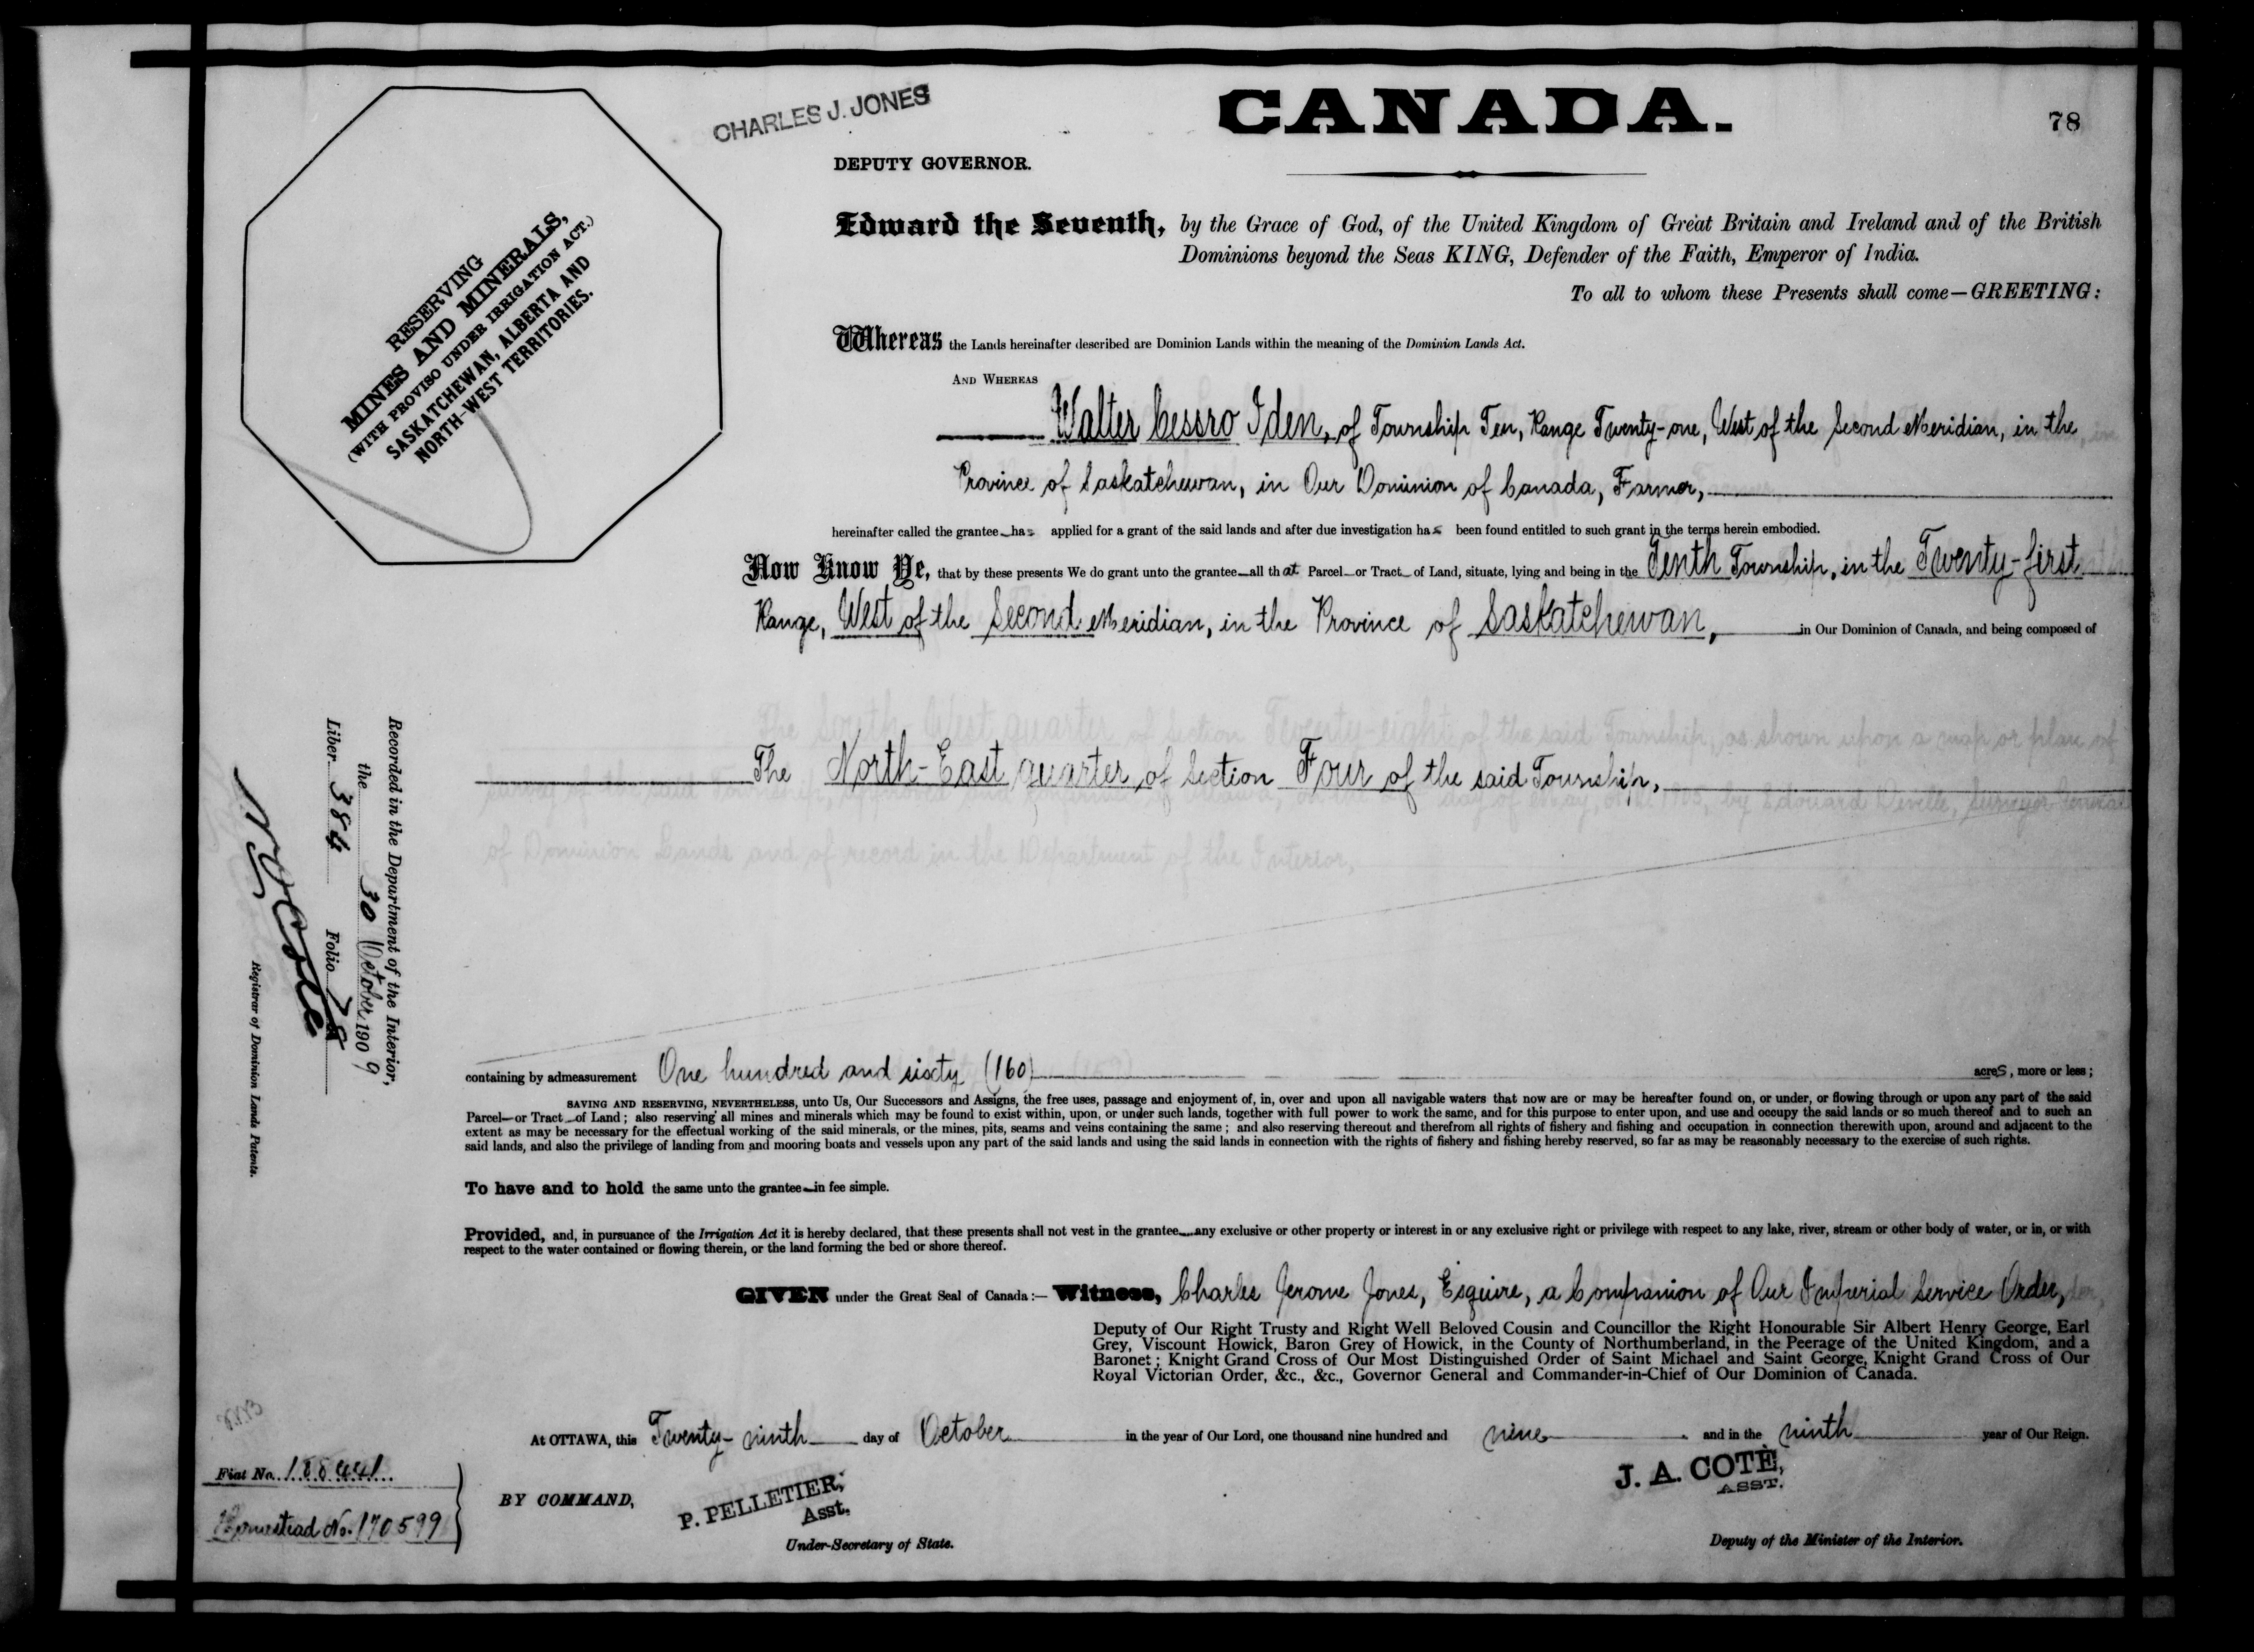 CHARLES J. JONES
CANADA.
78
DEPUTY GOVERNOR.
RESERVING
MINES AND MINERALS,
(WITH PROVISO UNDER IRRIGATION ACT.)
SASKATCHEWAN, ALBERTA AND
NORTH-WEST TERRITORIES.
Edward the Seventh, by the Grace of God, of the United Kingdom of Great Britain and Ireland and of the British
Dominions beyond the Seas KING, Defender of the Faith, Emperor of India.
To all to whom these Presents shall come—GREETING:
Whereas the Lands hereinafter described are Dominion Lands within the meaning of the Dominion Lands Act.
AND WHEREAS
Walter Cessro Iden, of Township Ten, Range Twenty-one, West of the Second Meridian, in the
Province of Saskatchewan, in Our Dominion of Canada, Farmer,
hereinafter called the grantee has applied for a grant of the said lands and after due investigation has been found entitled to such grant in the terms herein embodied.
Now Know Ye, that by these presents We do grant unto the grantee all that Parcel or Tract of Land, situate, lying and being in the Tenth Township, in the Twenty-first
Range, West of the Second Meridian, in the Province of Saskatchewan, in Our Dominion of Canada, and being composed of
The North-East quarter of Section Four of the said Township,
Recorded in the Department of the Interior,
the 30 October 1909
Liber 384 Folio 78
Registrar of Dominion Lands Patents.
containing by admeasurement One hundred and sixty (160) acres, more or less;
SAVING AND RESERVING, NEVERTHELESS, unto Us, Our Successors and Assigns, the free uses, passage and enjoyment of, in, over and upon all navigable waters that now are or may be hereafter found on, or under, or flowing through or upon any part of the said
Parcel or Tract of Land; also reserving all mines and minerals which may be found to exist within, upon, or under such lands, together with full power to work the same, and for this purpose to enter upon, and use and occupy the said lands or so much thereof and to such an
extent as may be necessary for the effectual working of the said minerals, or the mines, pits, seams and veins containing the same; and also reserving thereout and therefrom all rights of fishery and fishing and occupation in connection therewith upon, around and adjacent to the
said lands, and also the privilege of landing from and mooring boats and vessels upon any part of the said lands and using the said lands in connection with the rights of fishery and fishing hereby reserved, so far as may be reasonably necessary to the exercise of such rights.
To have and to hold the same unto the grantee in fee simple.
Provided, and, in pursuance of the Irrigation Act it is hereby declared, that these presents shall not vest in the grantee any exclusive or other property or interest in or any exclusive right or privilege with respect to any lake, river, stream or other body of water, or in, or with
respect to the water contained or flowing therein, or the land forming the bed or shore thereof.
GIVEN under the Great Seal of Canada:— Witness, Charles Jerome Jones, Esquire, a Companion of Our Imperial Service Order,
Deputy of Our Right Trusty and Right Well Beloved Cousin and Councillor the Right Honourable Sir Albert Henry George, Earl
Grey, Viscount Howick, Baron Grey of Howick, in the County of Northumberland, in the Peerage of the United Kingdom, and a
Baronet; Knight Grand Cross of Our Most Distinguished Order of Saint Michael and Saint George, Knight Grand Cross of Our
Royal Victorian Order, &c., &c., Governor General and Commander-in-Chief of Our Dominion of Canada.
At OTTAWA, this Twenty-ninth day of October in the year of Our Lord, one thousand nine hundred and nine and in the ninth year of Our Reign.
Fiat No. 188441
Homestead No. 170599
BY COMMAND,
P. PELLETIER,
Asst.
Under-Secretary of State.
J. A. COTÉ,
ASST.
Deputy of the Minister of the Interior.